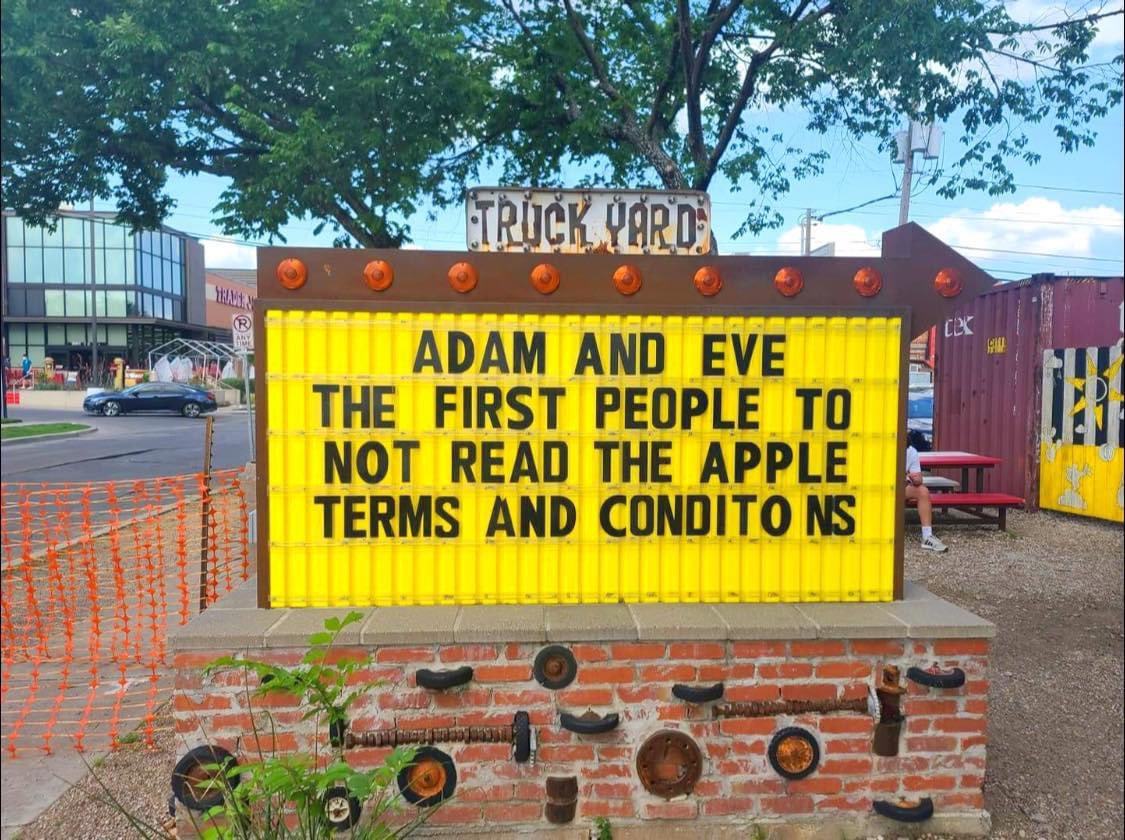 TRUCK YARD
ADAM AND EVE
THE FIRST PEOPLE TO
NOT READ THE APPLE
TERMS AND CONDITO NS
TRADER
ANY
TIME